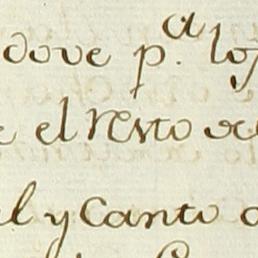 dove pª. los
el resto de
el y canto